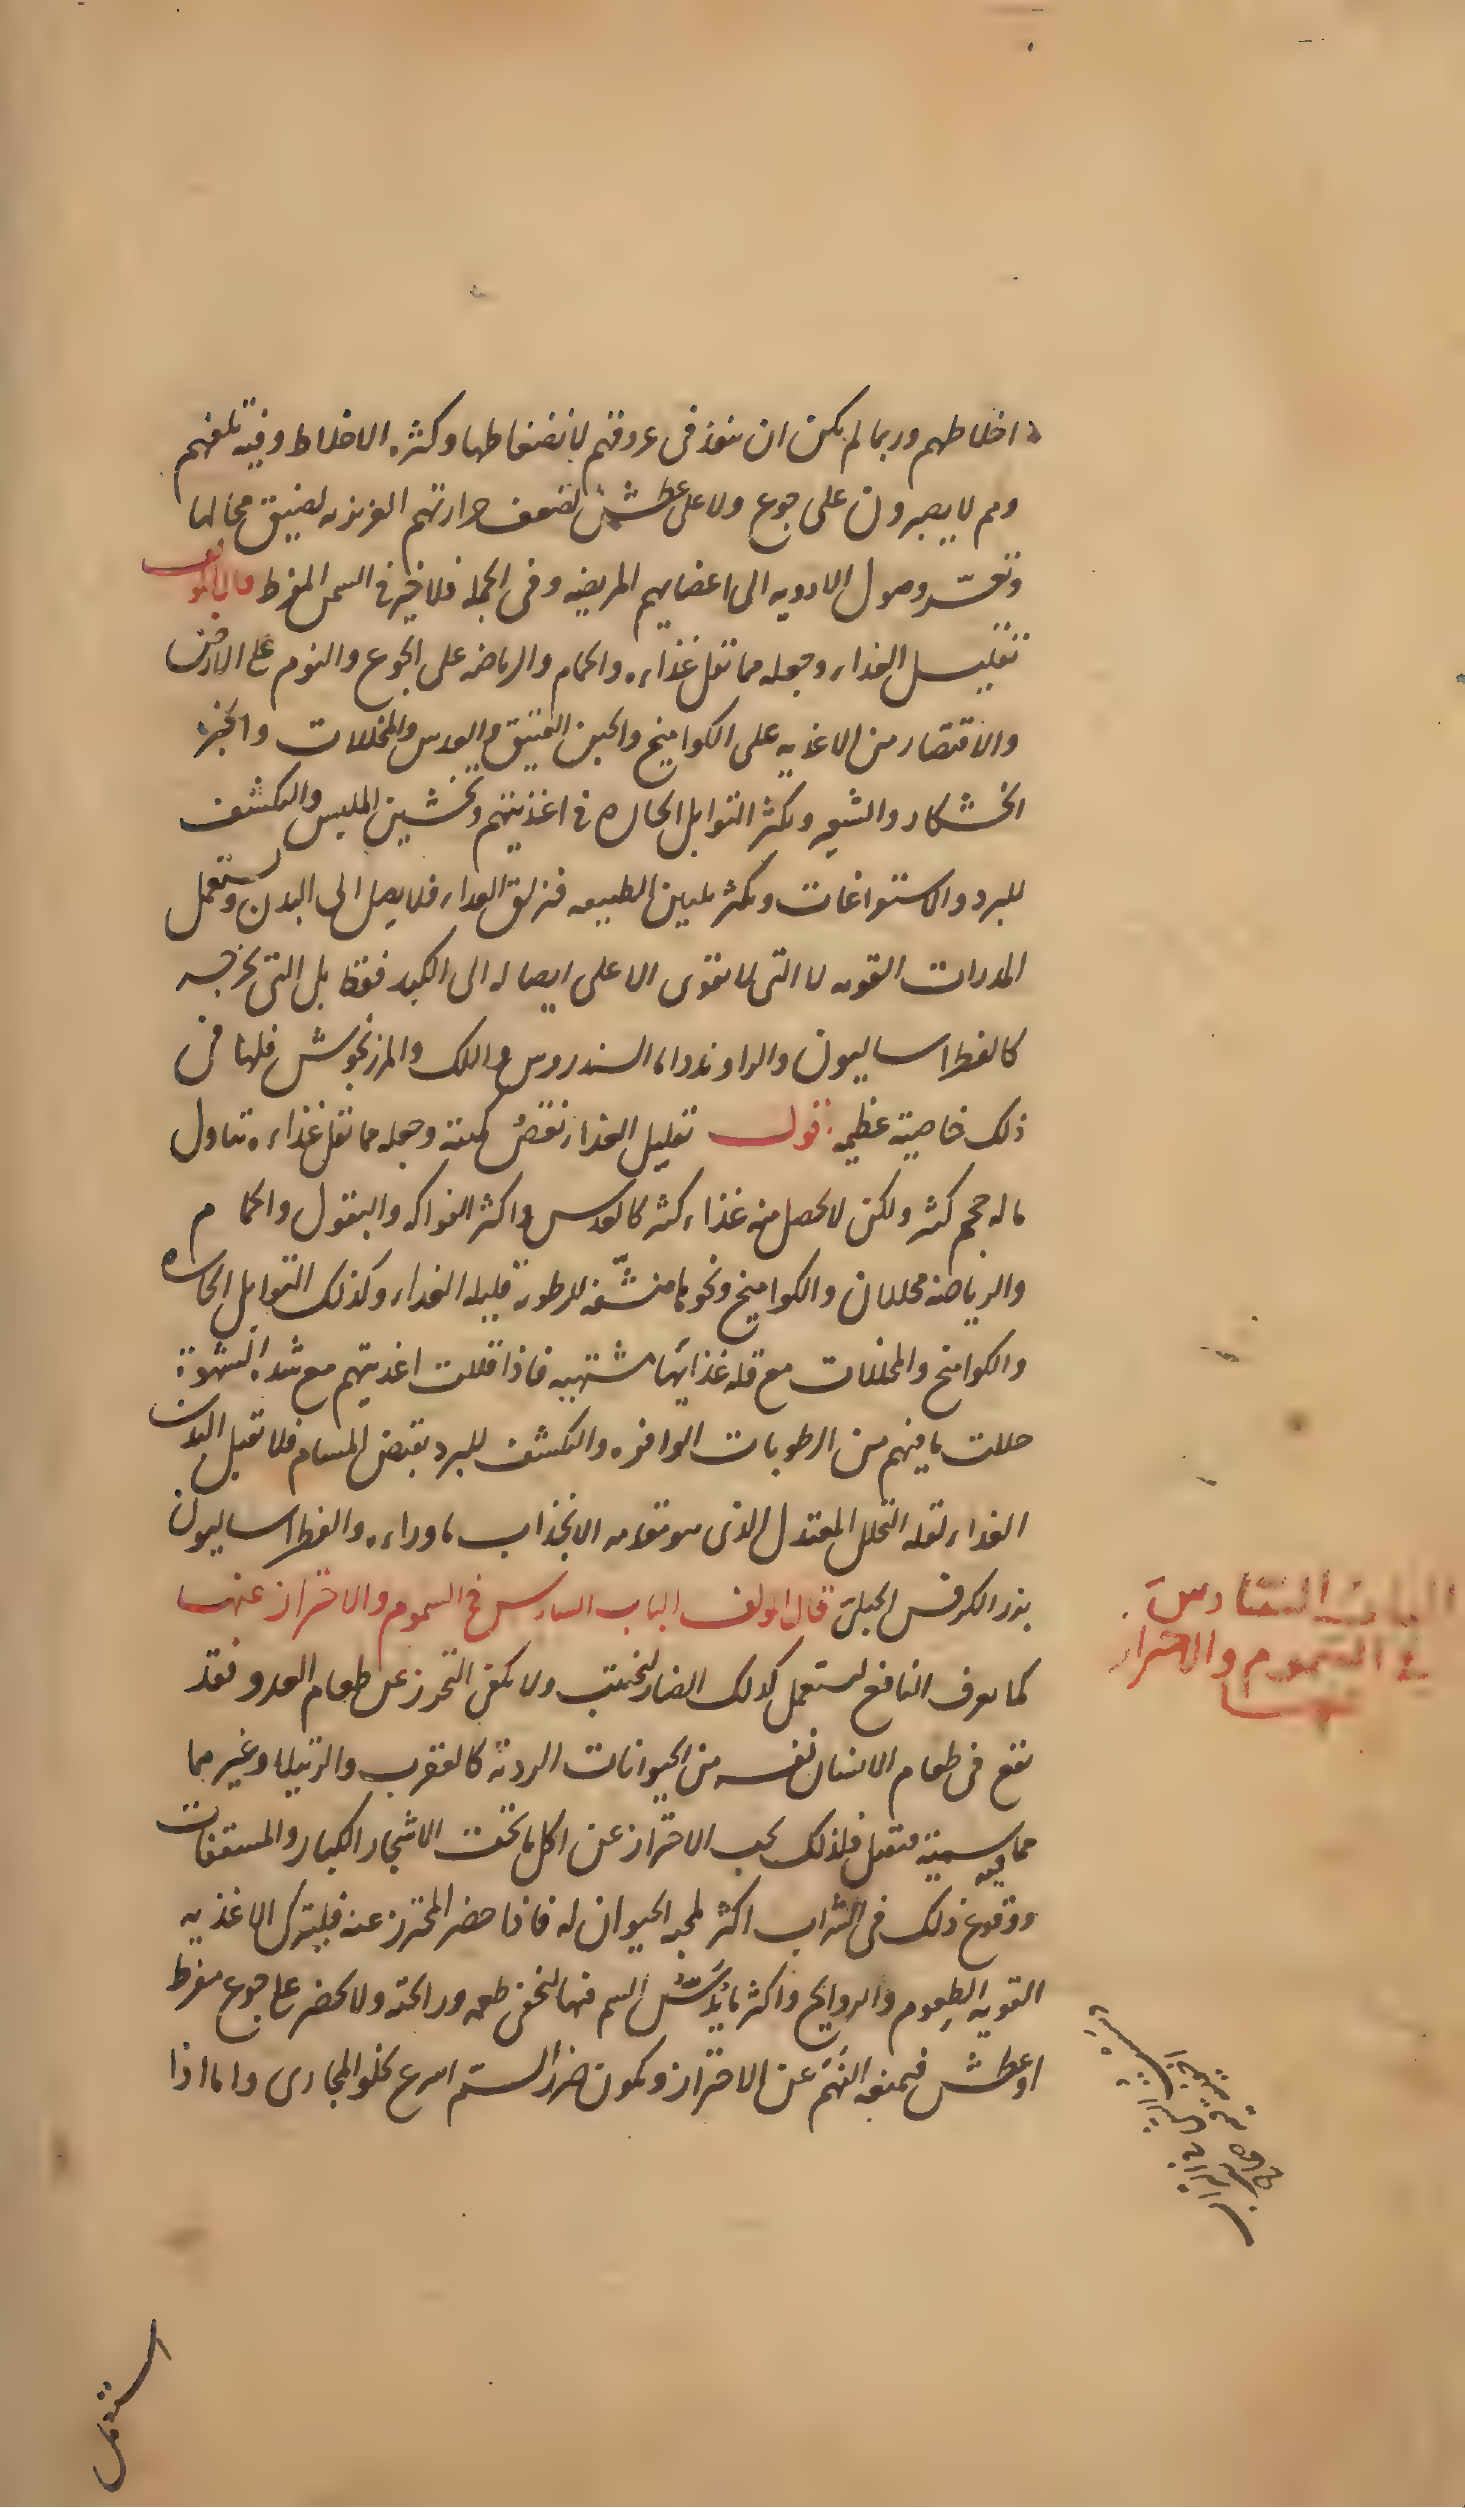 اخلاطهم وربما لم يكن ان ينفذ فى عروقهم لانضغاطها وكثرة الاخلاط وفيه تلفهم
وهم لا يصبرون على جوع ولا على عطش لضعف حرارتهم الغريزيه لضيق مجالها
وتعسر وصول الادويه الى اعضايهم المريضه وفى الجملة فلا خير فى السمن المفرط قال المولف
تقليل الغذاء وجعله مما تقل غذاءه والحمام والرياضه على الجوع والنوم على الارض
والاقتصار من الاغذيه على الكواميخ والجبن العتيق والعدس والمخللات والخبز
الخشكار والشعير ويكثر التوابل الحاره فى اغذيتهم وتخشين الملبس والتكشف
للبرد والاستفراغات ويكثر تليين الطبيعه فيزلق الغداء فلا يصل الى البدن ويستعمل
المدرات القويه لا التى لا تقوى الا على ايصاله الى الكبد فقط بل التى تخرجه
كالفطراساليون والراوند واما السندروس واللك والمرزنجوش فلها فى
ذلك خاصية عظيمه نقول تقليل الغذاء نقص كميته وجعله مما تقل غذاءه تناول
ما له حجم كثير ولكن لا يحصل منه غذاء كثير كالعدس واكثر الفواكه والبقول والحمام
والرياضة محللان والكواميخ ونحوها منشّفه للرطوبة قليله الغداء وكذلك التوابل الحاره
والكوامخ والمخللات مع قله غذايها مشتهيه فاذا قللت اغذيتهم مع شدة الشهوة
حللت ما فيهم من الرطوبات الوافره والتكشف للبرد يقبض المسام فلا تقبل البدن
الغداء لقله التحلل المعتدل الذى هو مقدمه الانجذاب ما وراءه والفطراساليون
بزر الكرفس الجبلى قال المولف الباب السادس فى السموم والاحتراز عنها
كما يعرف النافع ليستعمل كذلك الضار ليجتنب ولا يكفى التحرز عن طعام العدو فقد
يقع فى طعام الانسان نفسه من الحيوانات الردية كالعقرب والرتيلا وغيرهما
مما فيه سمية فتقتل فلذلك يجب الاحتراز عن اكل ما تحت الاشجار الكبار والمستقفات
ووقوع ذلك فى الشراب اكثر لمحبه الحيوان له فاذا حضر المحترز عنه فليترك الاغذيه
القويه الطعوم والروايح واكثر ما يُدَسّ السم فيها ليخفى طعمه ورائحته ولا يحضر على جوع مفرط
او عطش فيمنعه النَهَم عن الاحتراز ويكون ضرر السّم اسرع لخلو المجارى واما اذا
الباب السّادس
فى السموم والاحتراز
عنها